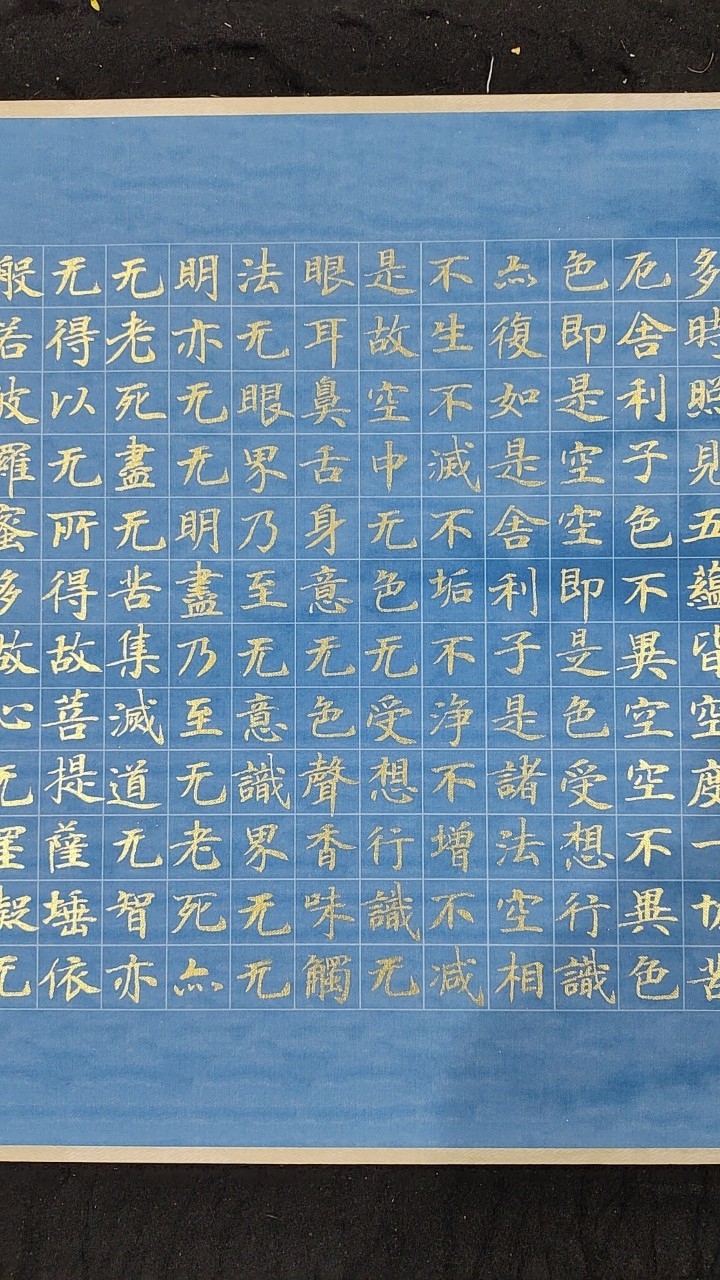 多時照見五蘊皆空度一切苦
厄舍利子色不異空空不異色
色即是空空即是色受想行識
亦復如是舍利子是諸法空相
不生不滅不垢不淨不增不減
是故空中无色无受想行識无
眼耳鼻舌身意无色聲香味觸
法无眼界乃至无意識界无无
明亦无无明盡乃至无老死亦
无老死盡无苦集滅道无智亦
无得以无所得故菩提薩埵依
般若波羅蜜多故心无罣礙无